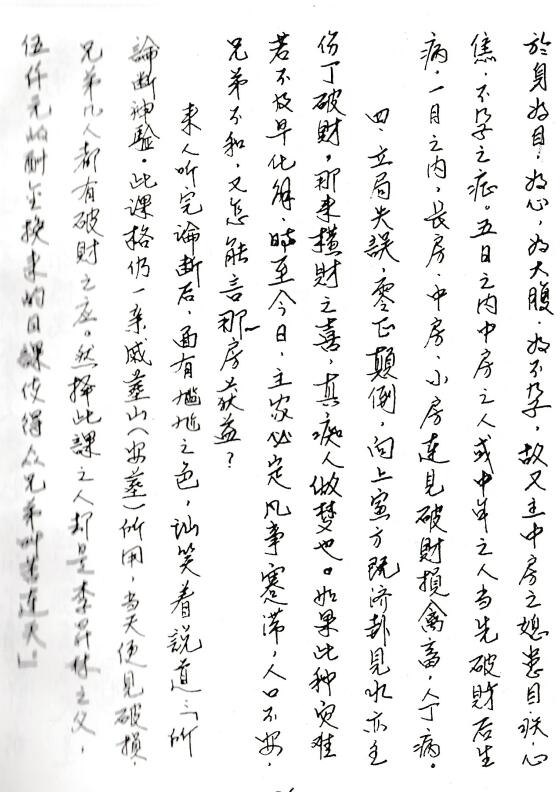 於身为目，为心，为大腹，为不孕，故又主中房之媳患目疾、心
焦、不孕之症。五日之内中房之人或中年之人当先破財后生
病，一月之内，長房、中房、小房连見破財損禽畜，人丁病。
四、立局失誤，零正顛倒，向上离方既济卦見水亦主
份丁破財，那来橫財之喜，真痴人做梦也。如果此种灾难
若不及早化解，時至今日，主家必定凡事蹇滞，人口不安，
兄弟不和，又怎能言那房获益？
来人听完論断后，面有尴尬之色，讪笑着説道：「所
論断神驗。此课格仍一亲戚墓山（安墓）所用，当天便見破損，
兄弟几人都有破財之应。然择此課之人却是李 之父，
伍仟元的酬金换来的日課使得众兄弟叫苦连天。」